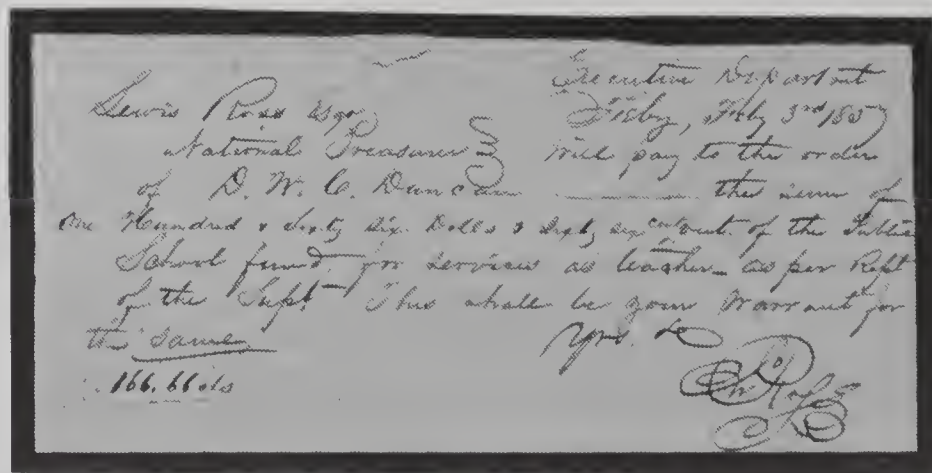 Executive Department
Lewis Ross Esqr Feby 3rd 1857
National Treasurer Will pay to the order
of D. W. C. Duncan the sum of
One Hundred & Sixty Six Dolls & Sixty six cents out of the Public
School fund, for services as teacher as per Rept
of the Supt This shall be your Warrant for
the same Yrs. &c
166.66 cts Jno Ross